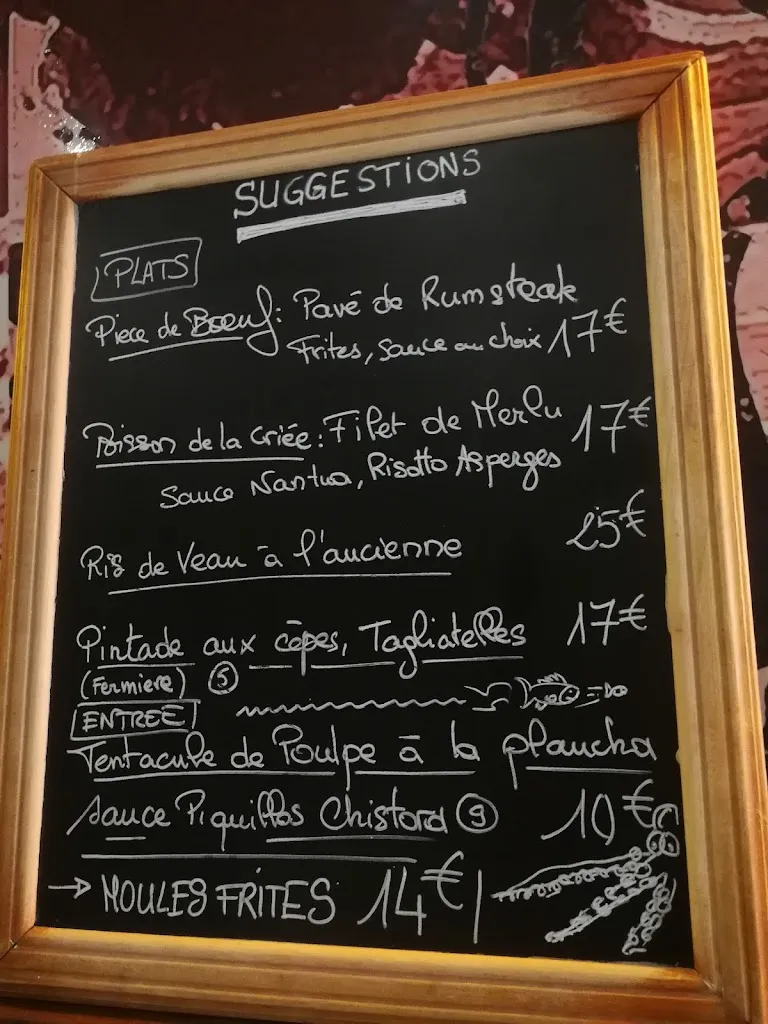 SUGGESTIONS
PLATS
Piece de Boeuf: Pavé de Rumsteak
Frites, sauce au choix 17€
Poisson de la Criée: Filet de Merlu 17€
Sauce Nantua, Risotto Asperges
Ris de Veau à l'ancienne 25€
Pintade aux cêpes, Tagliatelles 17€
(Fermiere) 5
ENTREE
Tentacule de Poulpe à la plancha
sauce Piquillos Chistora 9 10€
→ MOULES FRITES 14€